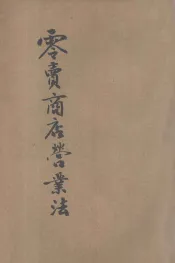 零賣商店營業法